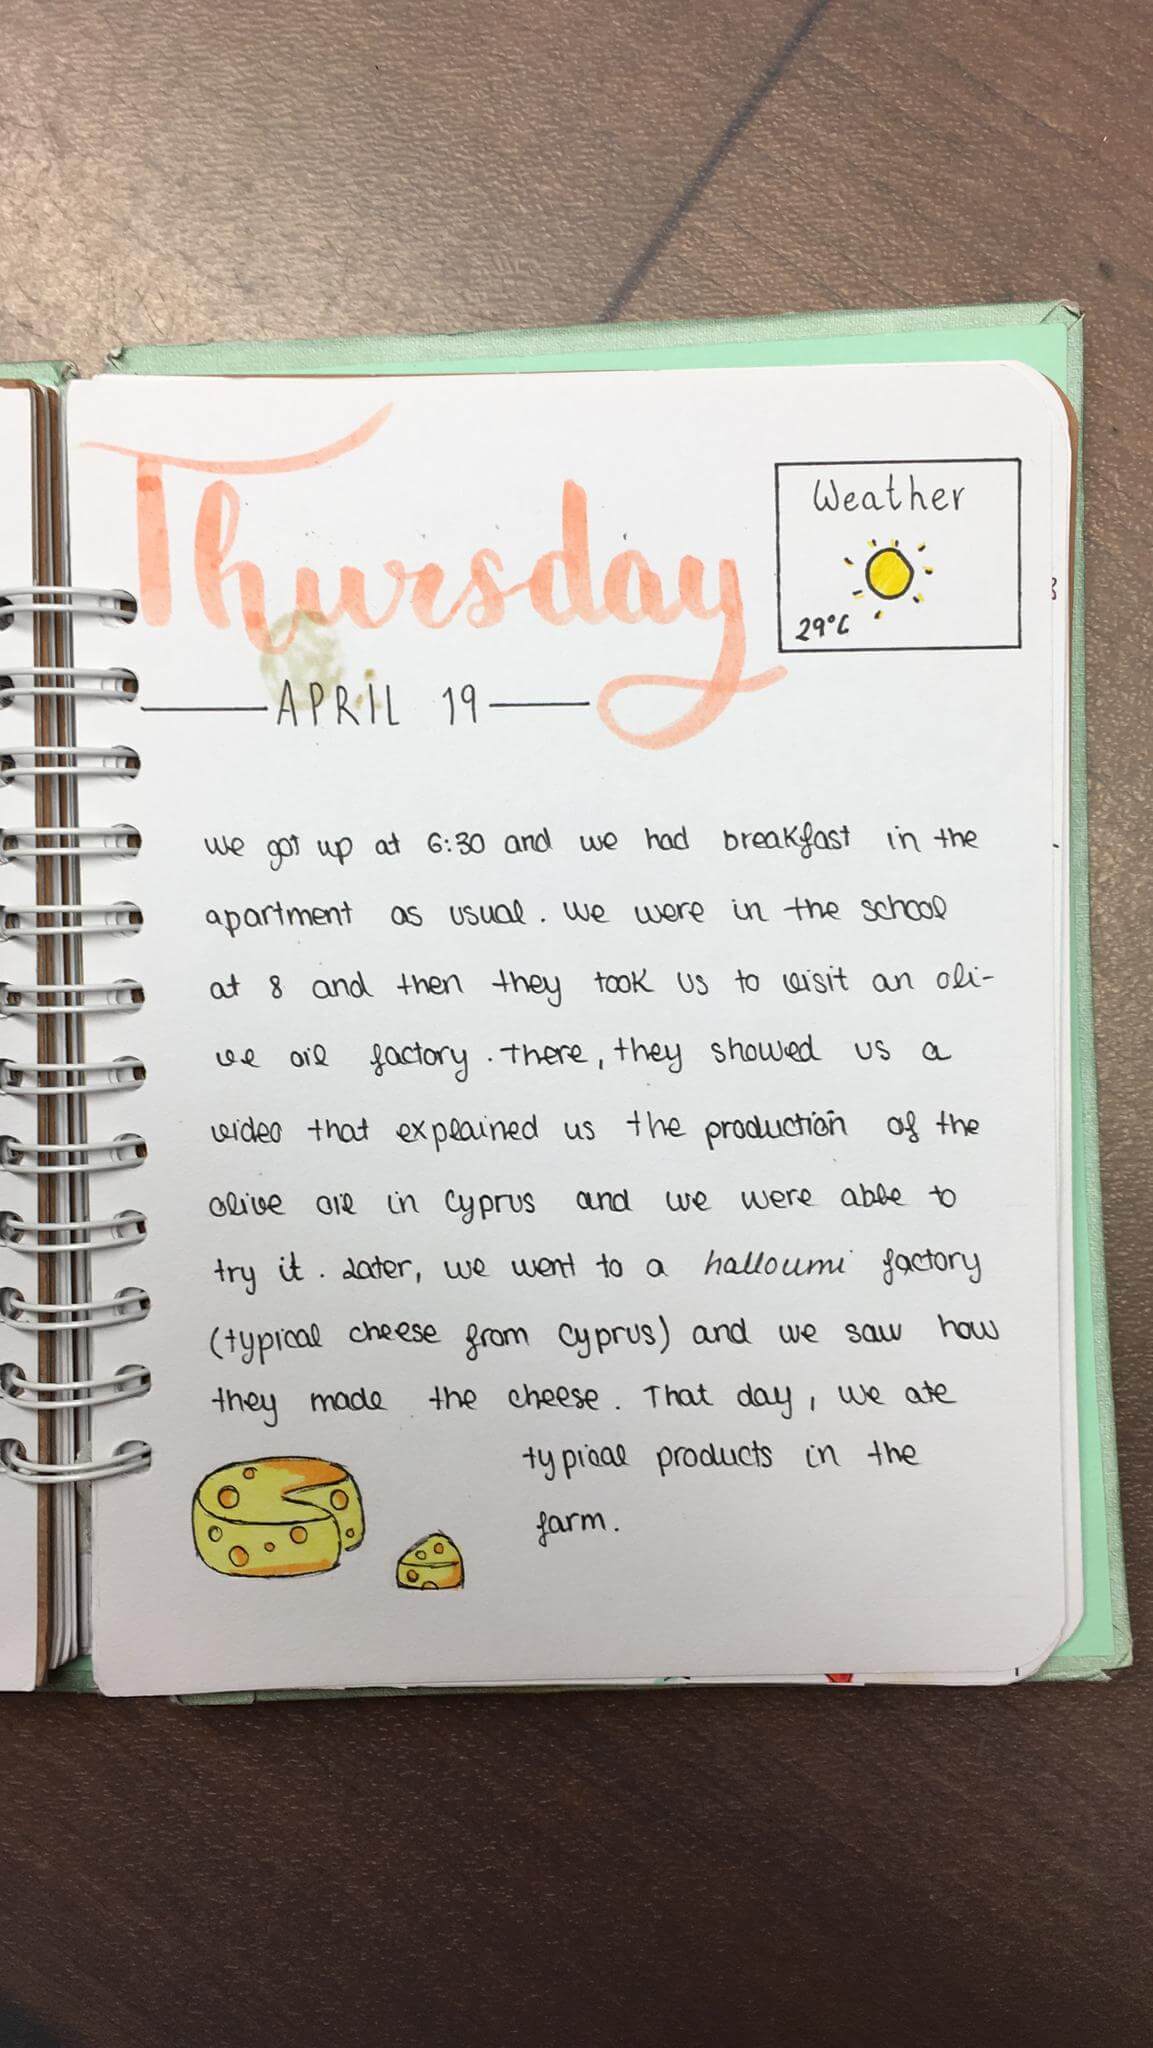 Thursday
Weather
29°C
APRIL 19
we got up at 6:30 and we had breakfast in the
apartment as usual. we were in the school
at 8 and then they took us to visit an oli-
ve oil factory. there, they showed us a
video that explained us the production of the
olive oil in Cyprus and we were able to
try it. Later, we went to a halloumi factory
(typical cheese from Cyprus) and we saw how
they made the cheese. That day, we ate
typical products in the
farm.